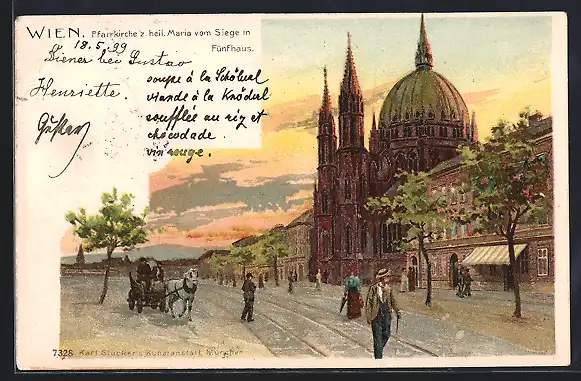 WIEN. Pfarrkirche z. heil. Maria vom Siege in
Fünfhaus.
18.5.99
Diener bei Gustav
Henriette.
Gustav
soupe à la Schöberl
viande à la Knöderl
soufflée au riz et
chocolade
vin rouge.
7328 Karl Stücker's Kunstanstalt, München